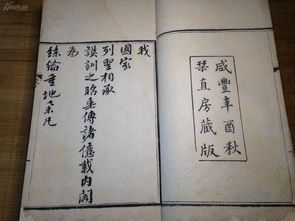 咸豐辛酉秋
栞直房藏版
我
國家
列聖相承
謨訓之昭垂傳諸億載內閣
為
絲綸重地